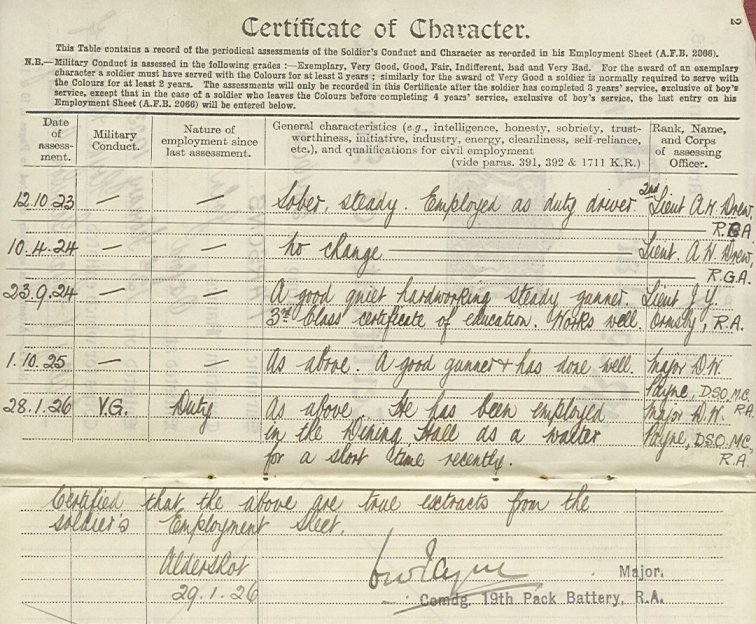 2
Certificate of Character.
This Table contains a record of the periodical assessments of the Soldier's Conduct and Character as recorded in his Employment Sheet (A.F.B. 2066).
N.B.—Military Conduct is assessed in the following grades :—Exemplary, Very Good, Good, Fair, Indifferent, bad and Very Bad. For the award of an exemplary
character a soldier must have served with the Colours for at least 3 years ; similarly for the award of Very Good a soldier is normally required to serve with
the Colours for at least 2 years. The assessments will only be recorded in this Certificate after the soldier has completed 3 years' service, exclusive of boy's
service, except that in the case of a soldier who leaves the Colours before completing 4 years' service, exclusive of boy's service, the last entry on his
Employment Sheet (A.F.B. 2066) will be entered below.
Date of assessment.
Military Conduct.
Nature of employment since last assessment.
General characteristics (e.g., intelligence, honesty, sobriety, trust-
worthiness, initiative, industry, energy, cleanliness, self-reliance,
etc.), and qualifications for civil employment
(vide paras. 391, 392 & 1711 K.R.)
Rank, Name, and Corps of assessing Officer.
12.10.23 — — Sober, steady. Employed as duty driver 2nd Lieut A.H. Drew
RGA
10.4.24 — — No change Lieut. A.H. Drew,
RGA.
23.9.24 — — A good quiet hardworking steady gunner. Lieut J.Y.
3rd Class certificate of education. Works well. Ormsby, R.A.
1.10.25 — — As above. A good gunner & has done well. Major D.W.
Payne, DSO. M.C. RA
28.1.26 V.G. Duty As above. He has been employed Major D.W.
in the Dining Hall as a waiter Payne, DSO. MC,
for a short time recently. R.A.
Certified that the above are true extracts from the
soldier's Employment Sheet.
Aldershot
29.1.26
DW Payne Major.
Comdg. 19th Pack Battery, R.A.